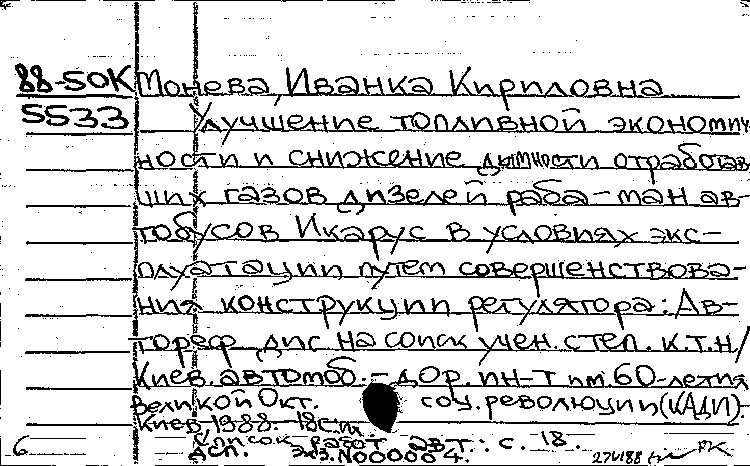 88-50К Монева, Иванка Кирилловна
5533 Улучшение топливной экономич
ности и снижение дымности отработав
ших газов дизелей раба-ман ав-
тобусов Икарус в условиях экс-
плуатации путем совершенствова-
ния конструкции регулятора: Ав-
тореф. дис на соиск учен. степ. к.т.н/
Киев. автомоб.-дор. ин-т им. 60-летия
Великой Окт. соц. революции (КАДИ)-
Киев, 1988.-18с.;
Список работ авт.: с. 18.
6 дсп. экз. №000004. 27